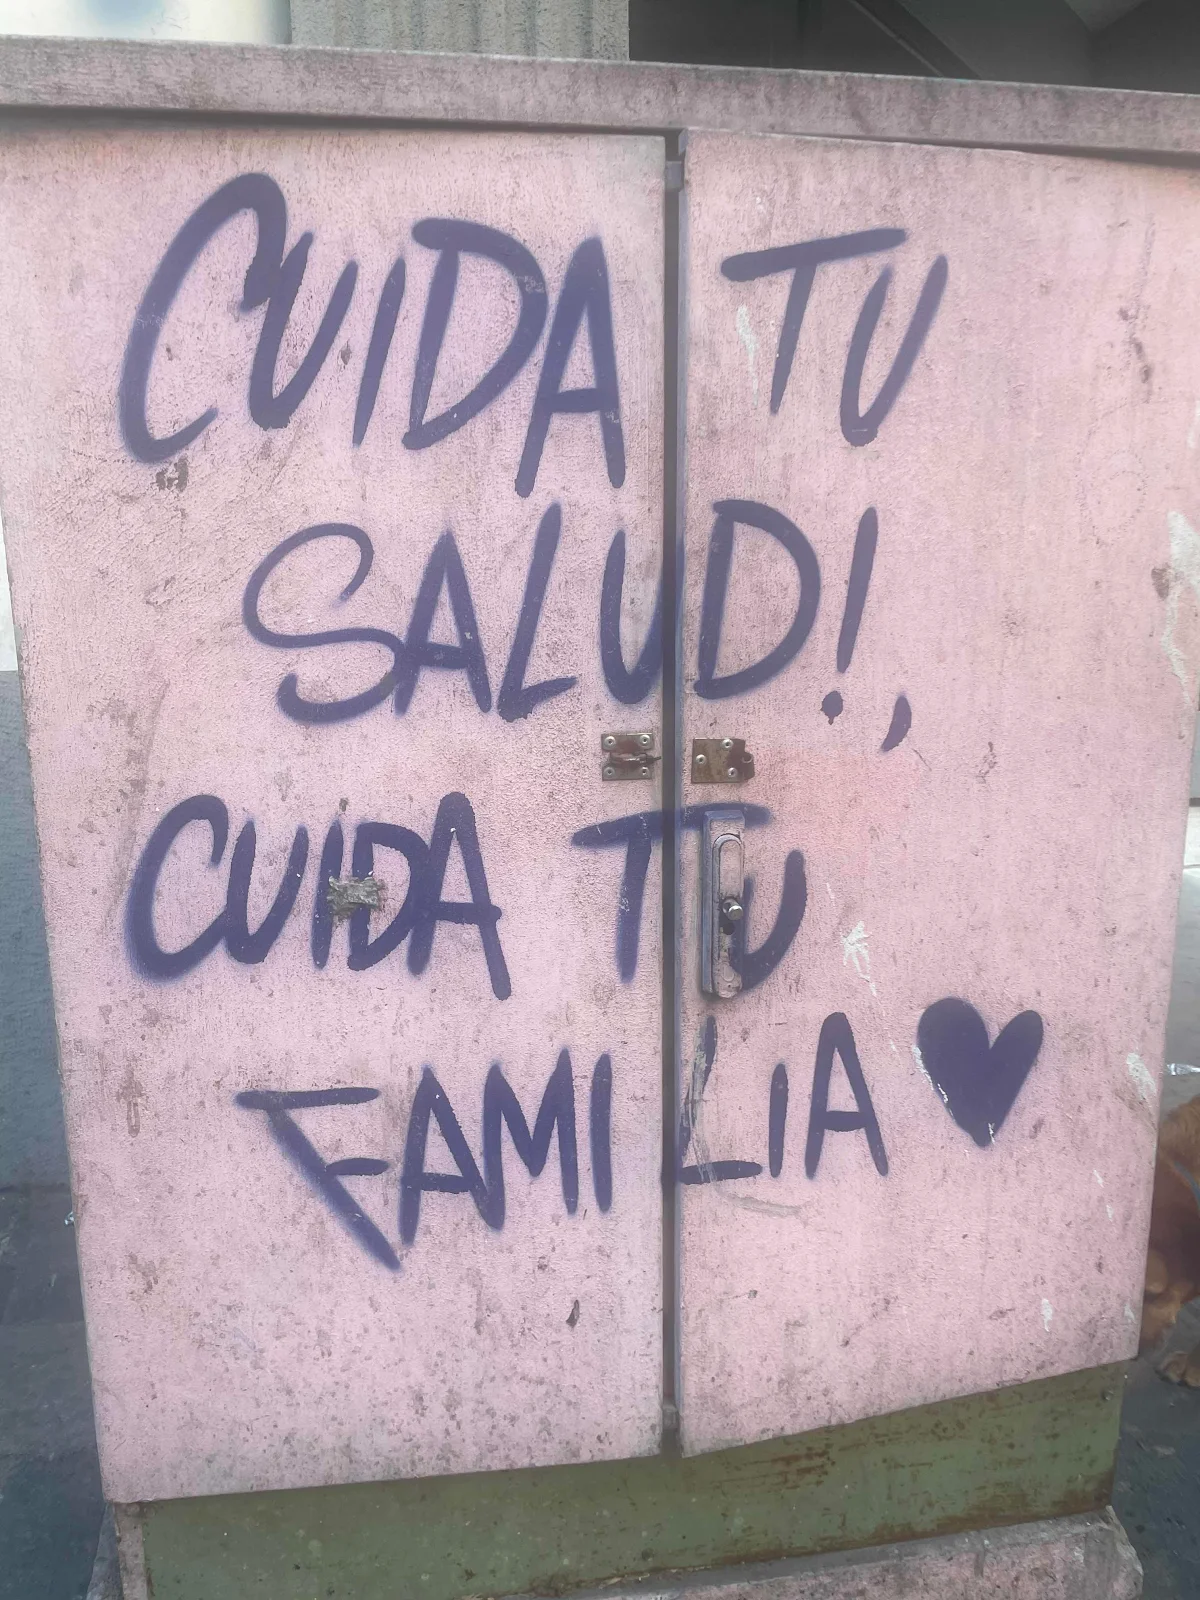 CUIDA TU
SALUD!,
CUIDA TU
FAMILIA ♥